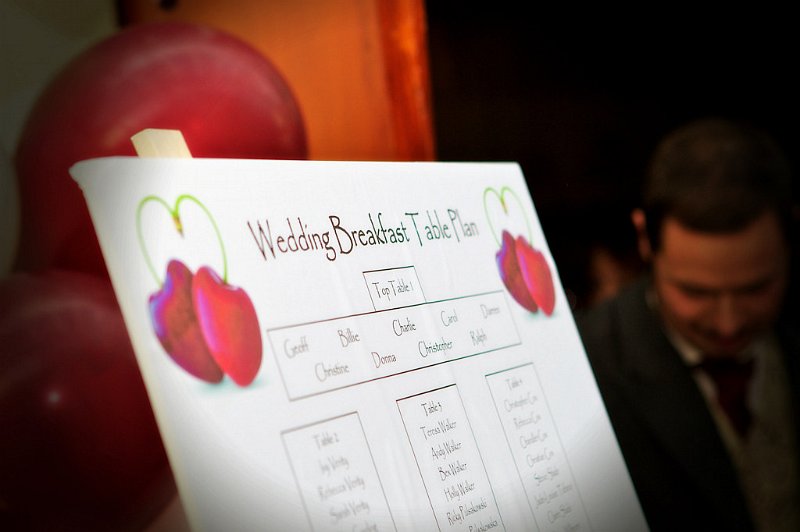 Wedding Breakfast Table Plan
Top Table 1
Geoff Billie Charlie Carol Darren
Christine Donna Christopher Ralph
Table 2
Jay Verity
Rebecca Verity
Sarah Verity
Table 3
Teresa Walker
Andy Walker
Bex Walker
Holly Walker
Ricky
Table 4
Christopher Cox
Rebecca Cox
Chandler Cox
Christian Cox